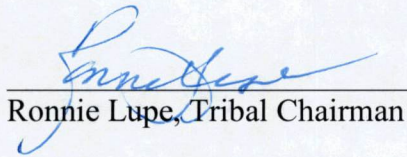 Ronnie Lupe
Ronnie Lupe, Tribal Chairman